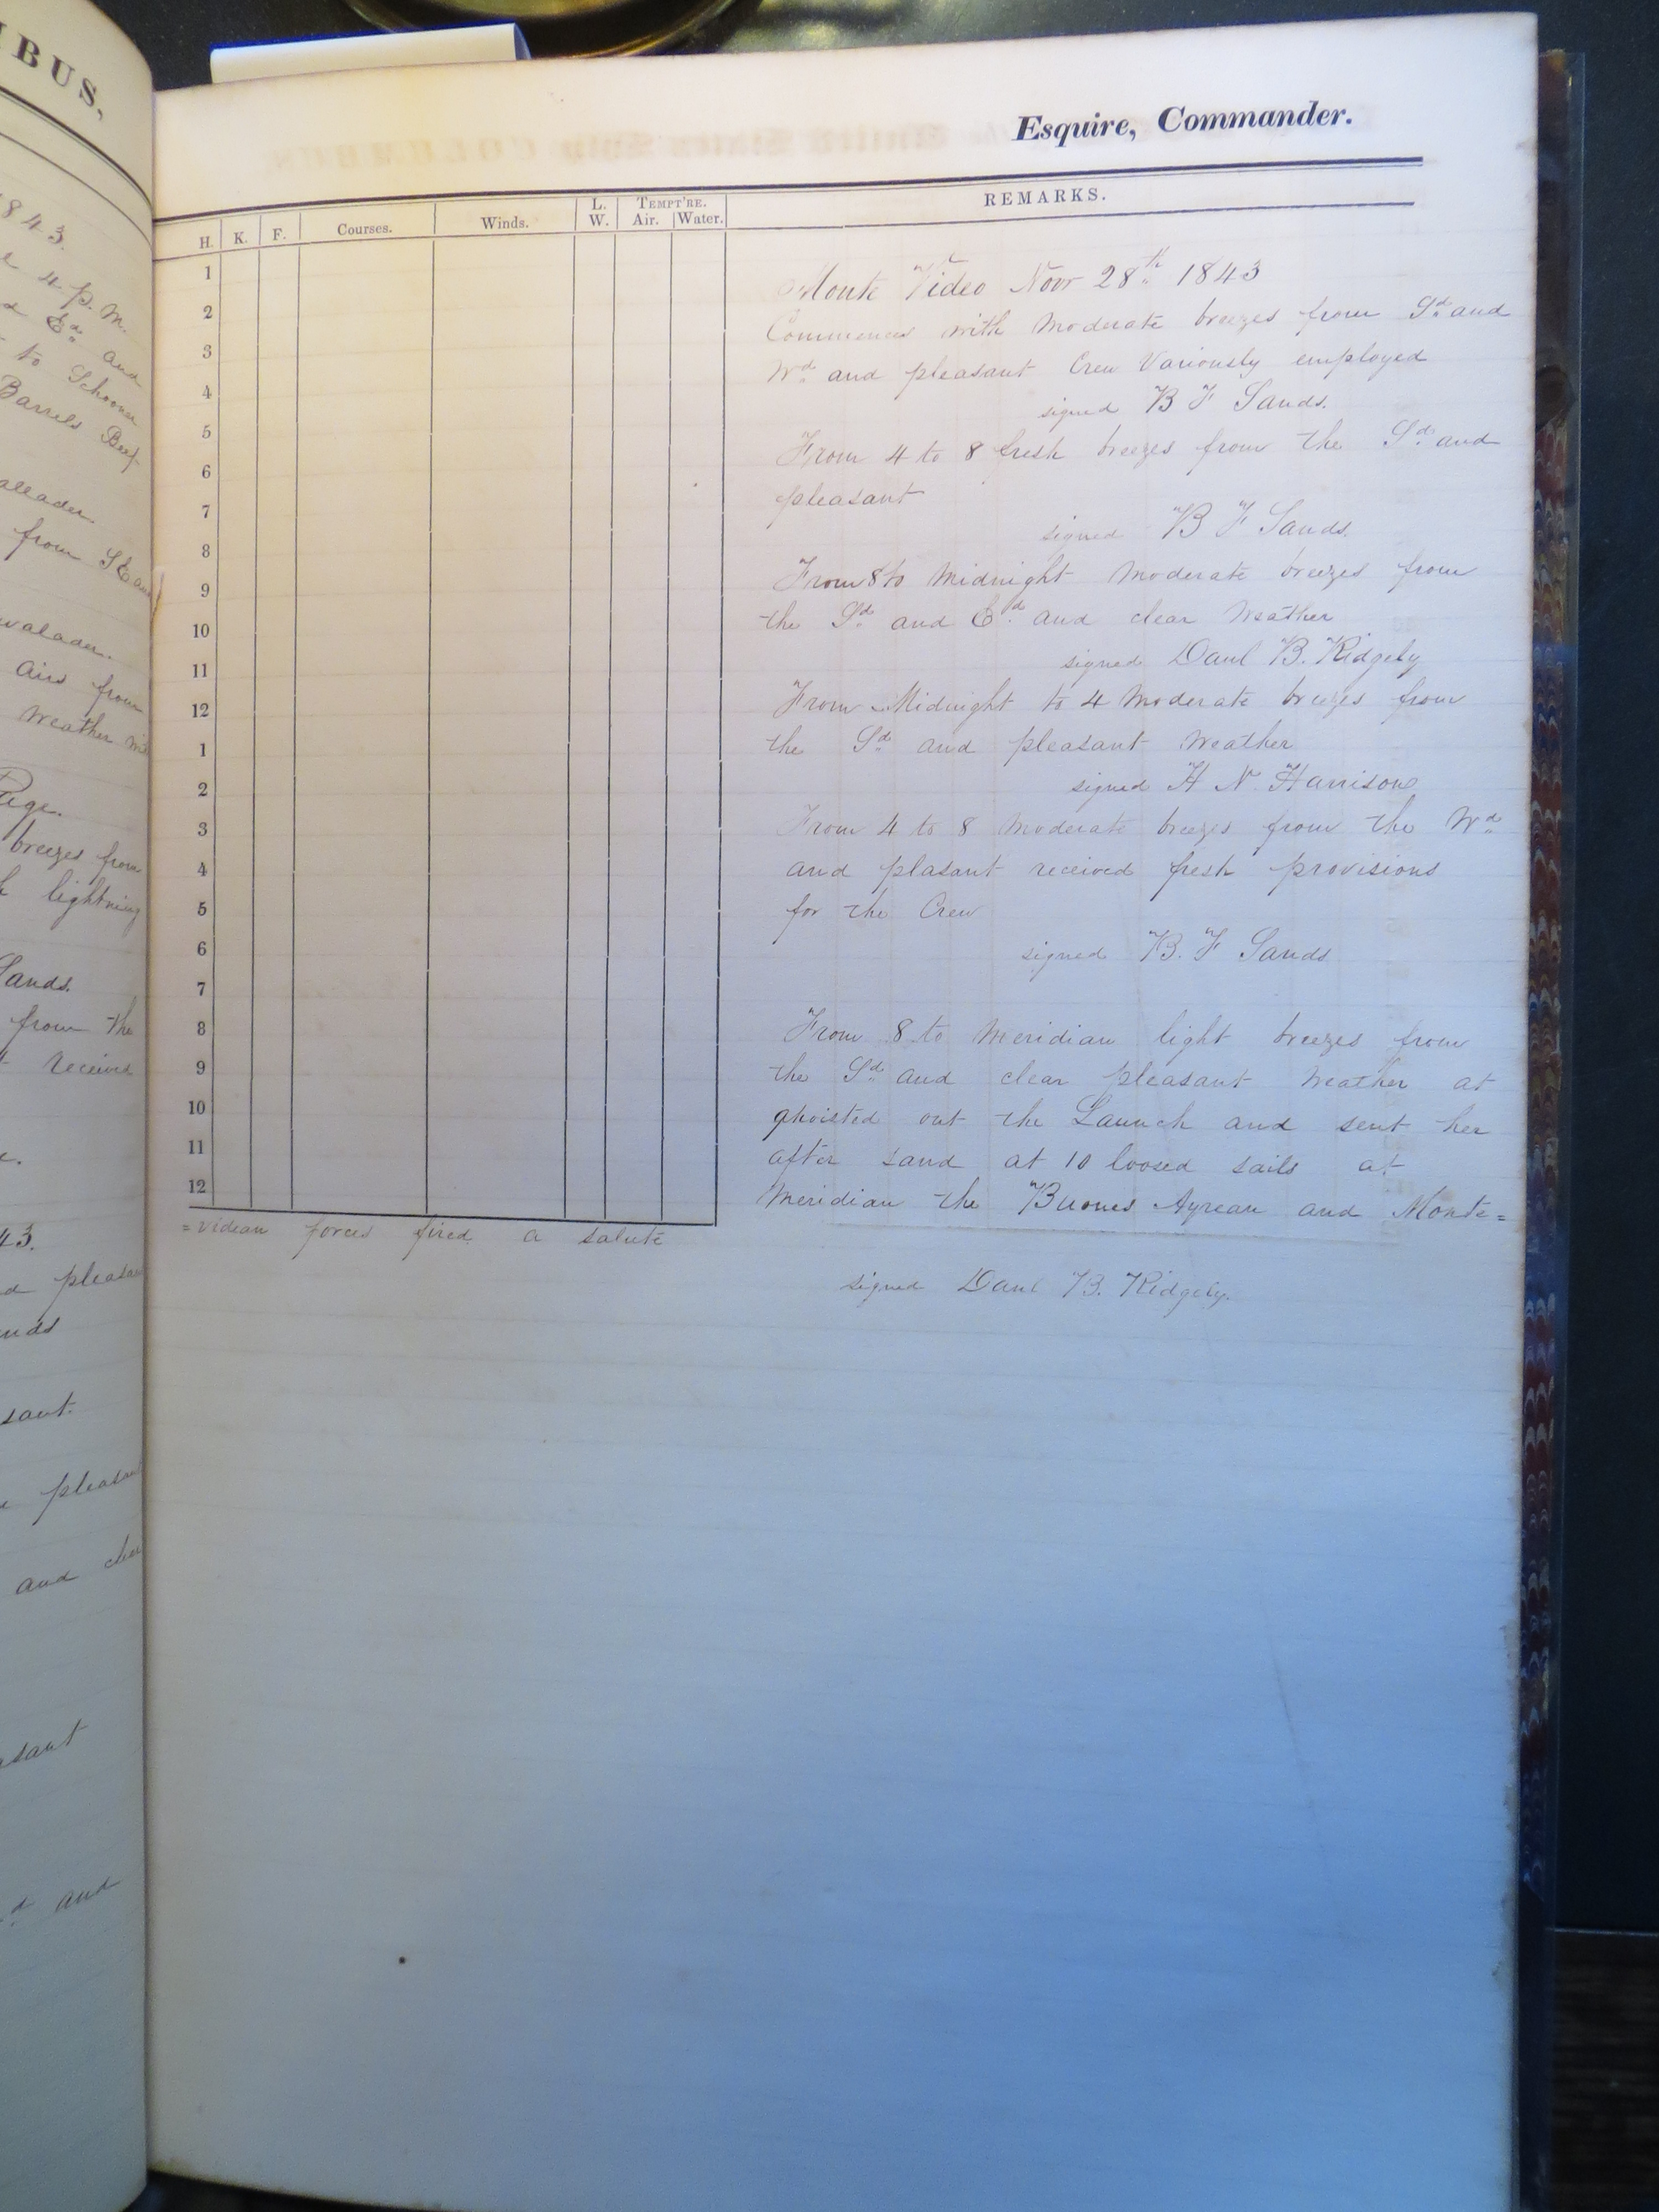 IBUS,
1843.
4 p. M.
Ed. and
to Schooner
Barrels Beef
allader.
from SE and
walader.
airs from
Weather
Page.
breezes from
lightning
Sands.
from the
received
43.
pleasant
and clear
and
Esquire, Commander.
H. K. F. Courses. Winds. L. W. TEMPT'RE. Air. Water. REMARKS.
1
2
3
4
5
6
7
8
9
10
11
12
1
2
3
4
5
6
7
8
9
10
11
12
Monte Video Novr 28th 1843
Commences with moderate breezes from Sd and
Wd and pleasant Crew Variously employed
signed B F Sands.
From 4 to 8 fresh breezes from the Sd and
pleasant
signed B F Sands.
From 8 to Midnight moderate breezes from
the Sd and Ed. and clear weather
signed Danl B. Ridgely
From Midnight to 4 moderate breezes from
the Sd and pleasant weather
signed H N Harrison
From 4 to 8 moderate breezes from the Wd
and plasant received fresh provisions
for the Crew
signed B. F Sands
From 8 to meridian light breezes from
the Sd and clear pleasant weather at
9hoisted out the Launch and sent her
after sand at 10 loosed sails at
meridian the Buones Ayrean and Monte=
=videan forces fired a salute
signed Danl B. Ridgely.